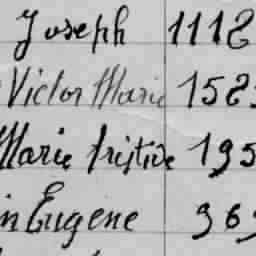 Joseph 1118
Victor Marie 158
Marie 195
in Eugene 369